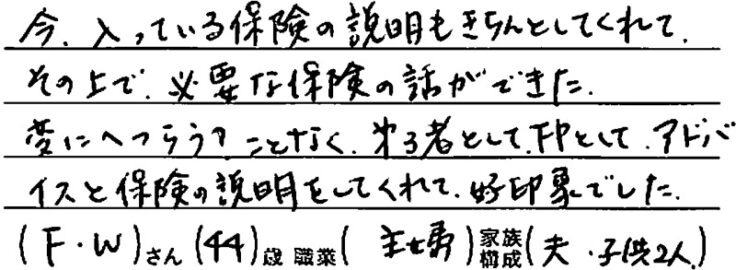 今、入っている保険の説明もきちんとしてくれて、
その上で、必要な保険の話ができた。
変にへつらうことなく、第3者として、FPとして、アドバ
イスと保険の説明をしてくれて、好印象でした。
(F・W)さん (44)歳 職業( 主婦 )家族構成(夫・子供2人)